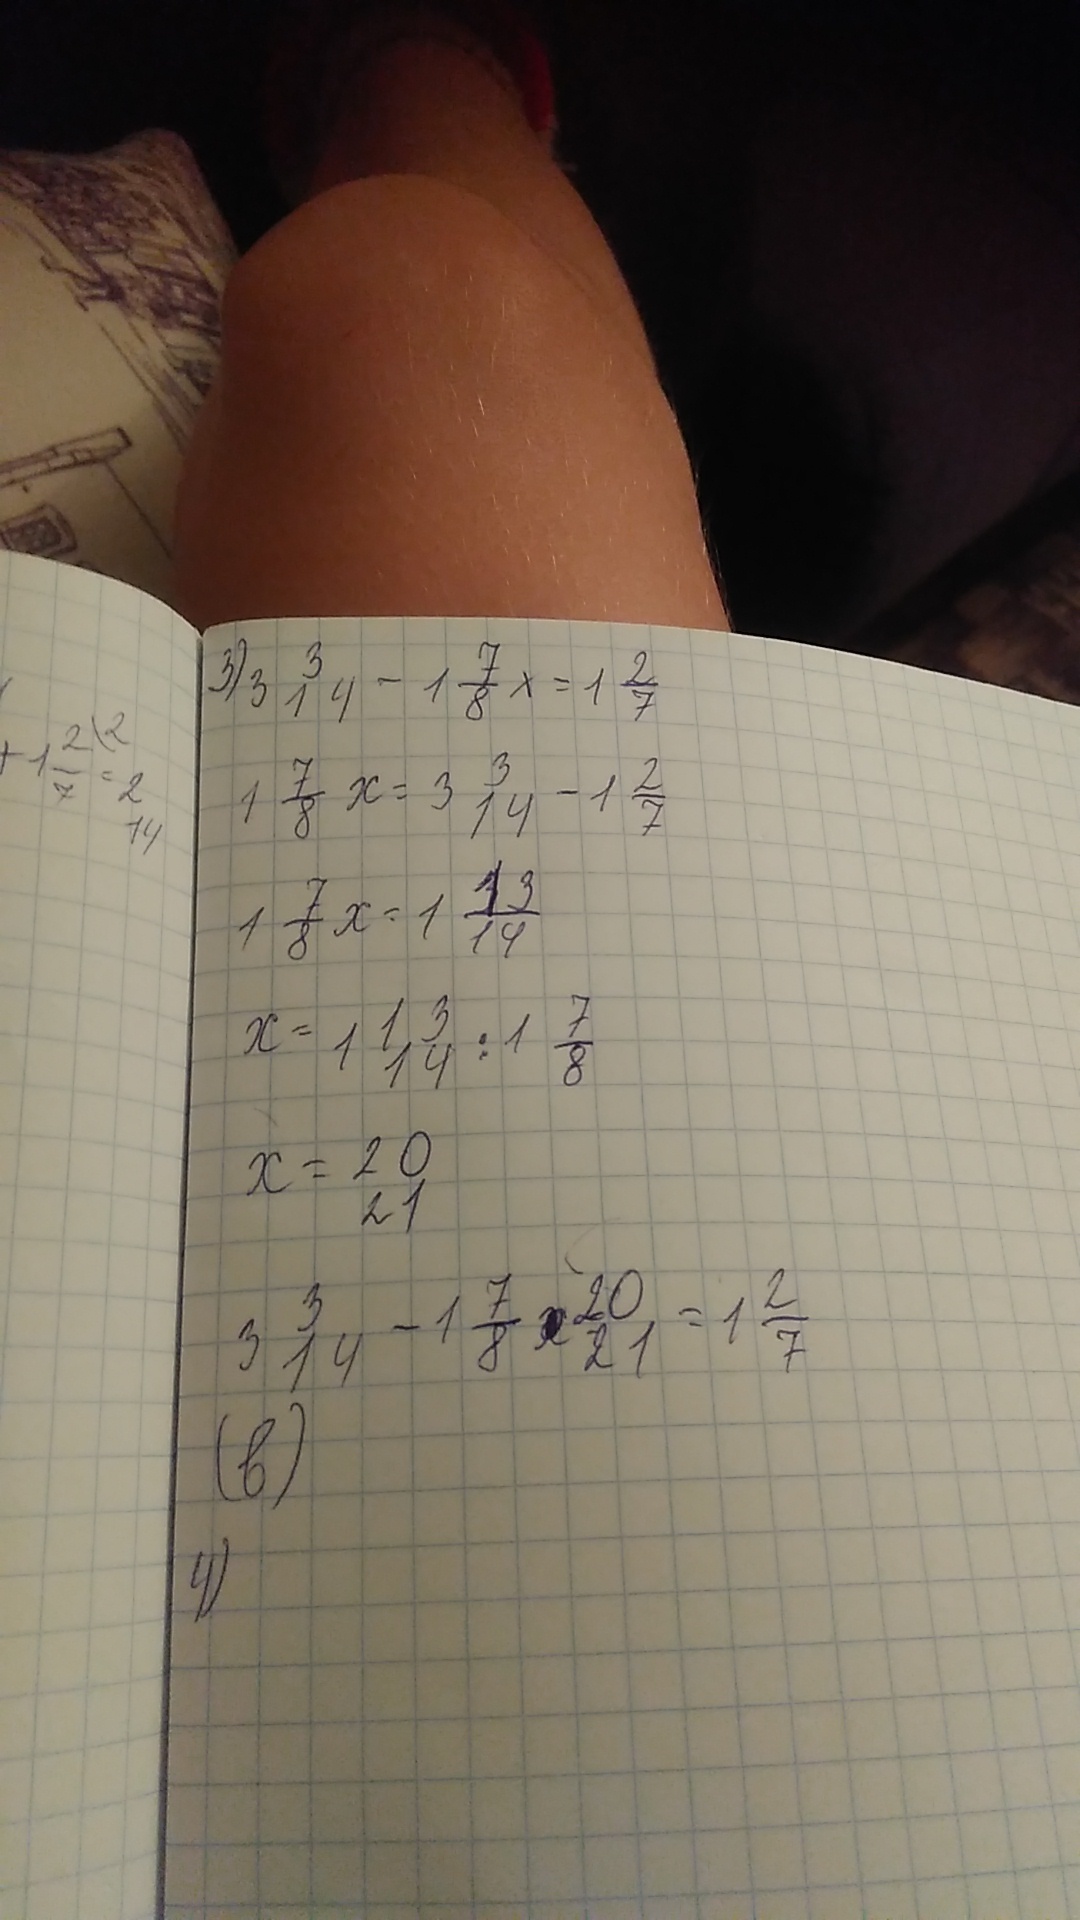 + 1 2/7 \2 = 2
14
3) 3 3/14 - 1 7/8 x = 1 2/7
1 7/8 x = 3 3/14 - 1 2/7
1 7/8 x = 1 13/14
x = 1 13/14 : 1 7/8
x = 20/21
3 3/14 - 1 7/8 × 20/21 = 1 2/7
(в)
4)